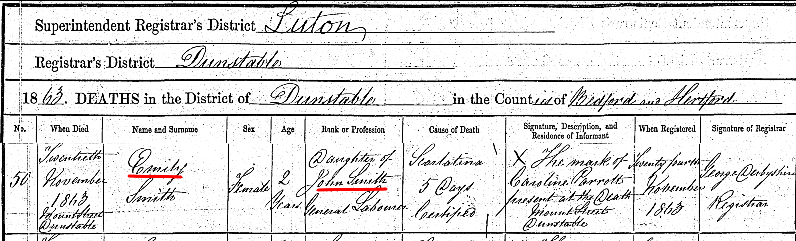 Superintendent Registrar's District Luton
Registrar's District Dunstable
1863. DEATHS in the District of Dunstable in the Counties of Bedford and Hertford
No. When Died Name and Surname Sex Age Rank or Profession Cause of Death Signature, Description, and Residence of Informant When Registered Signature of Registrar
50
Twentieth
November
1863
Mount Street
Dunstable
Emily
Smith
Female
2
Years
Daughter of
John Smith
General Labourer
Scarlatina
5 Days
Certified
X The mark of
Caroline Parrott
present at the Death
Mount Street
Dunstable
Twenty fourth
November
1863
George Derbyshire
Registrar